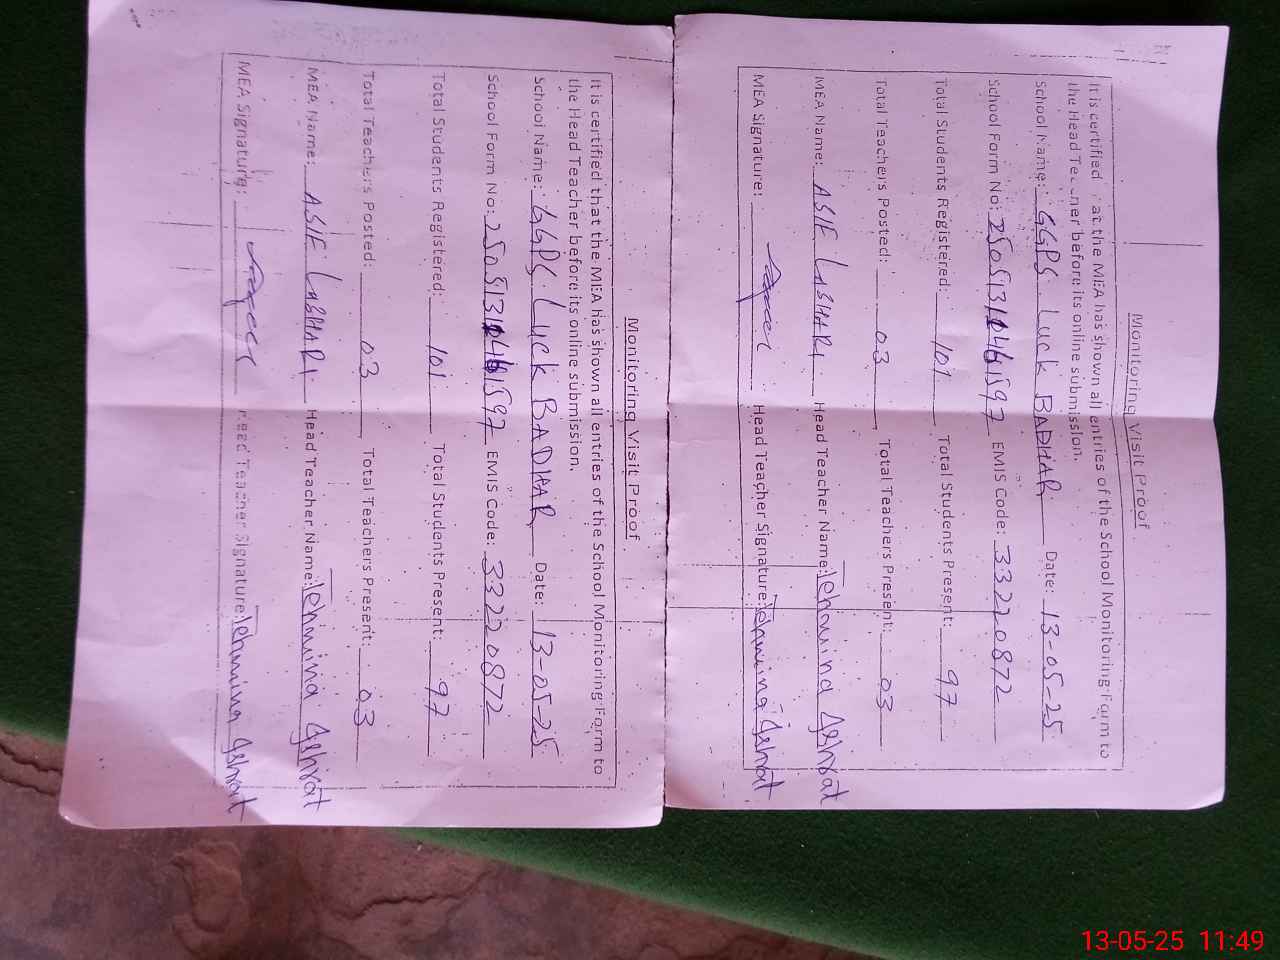 Monitoring Visit Proof
It is certified that the MEA has shown all entries of the School Monitoring Form to
the Head Teacher before its online submission.
School Name: GGPS Luck BADHAR Date: 13-05-25
School Form No: EMIS Code: 33220872
Total Students Registered: 101 Total Students Present: 97
Total Teachers Posted: 03 Total Teachers Present: 03
MEA Name: ASIF LASHARI Head Teacher Name: Tehmina Ishrat
MEA Signature: Head Teacher Signature: Tehmina Ishrat
Monitoring Visit Proof
It is certified that the MEA has shown all entries of the School Monitoring Form to
the Head Teacher before its online submission.
School Name: GGPS. Luck BADHAR Date: 13-05-25
School Form No: EMIS Code: 33220872
Total Students Registered: 101 Total Students Present: 97
Total Teachers Posted: 03 Total Teachers Present: 03
MEA Name: ASIF LASHARI Head Teacher Name: Tehmina Ishrat
MEA Signature: Head Teacher Signature: Tehmina Ishrat
13-05-25 11:49